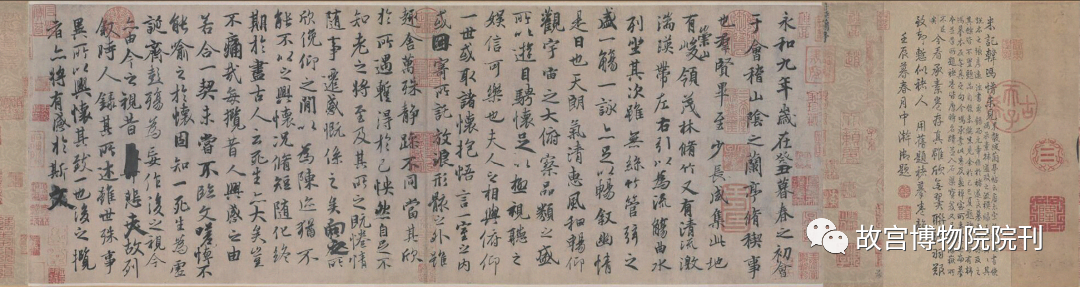 永和九年歲在癸丑暮春之初會
于會稽山陰之蘭亭脩稧事
也羣賢畢至少長咸集此地
有崇山峻領茂林脩竹又有清流激
湍暎帶左右引以為流觴曲水
列坐其次雖無絲竹管弦之
盛一觴一詠亦足以暢叙幽情
是日也天朗氣清惠風和暢仰
觀宇宙之大俯察品類之盛
所以遊目騁懷足以極視聽之
娛信可樂也夫人之相與俯仰
一世或取諸懷抱悟言一室之內
或因寄所託放浪形骸之外雖
趣舍萬殊靜躁不同當其欣
於所遇暫得於己怏然自足不
知老之將至及其所之既惓情
隨事遷感慨係之矣向之所
欣俛仰之間以為陳迹猶不
能不以之興懷況脩短隨化終
期於盡古人云死生亦大矣豈
不痛哉每攬昔人興感之由
若合一契未嘗不臨文嗟悼不
能喻之於懷固知一死生為虛
誕齊彭殤為妄作後之視今
亦由今之視昔悲夫故列
叙時人錄其所述雖世殊事
異所以興懷其致一也後之攬
者亦將有感於斯文
壬辰暮春月中澣御題
故宫博物院院刊